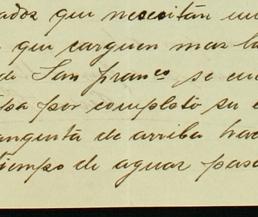 ados que necesitan un
que carguen mas la
de San Franco se en
por completo su
angenta de arriba hac
tiempo de aguas pasa